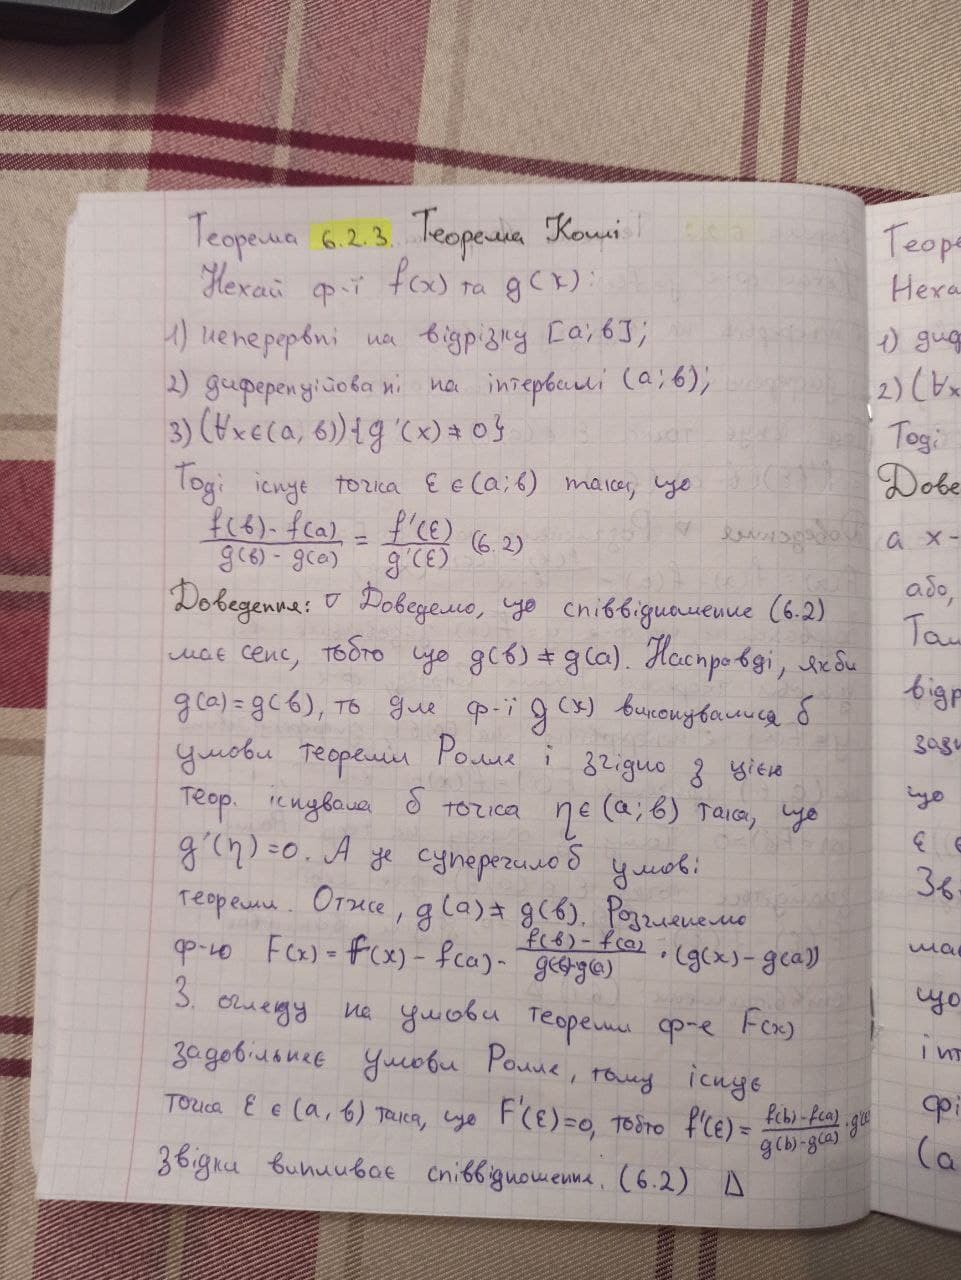 Теорема 6.2.3. Теорема Коші
Нехай ф-ї f(x) та g(x):
1) неперервні на відрізку [a; b];
2) диференційовані на інтервалі (a; b);
3) (∀x∈(a, b)){g'(x) ≠ 0}
Тоді існує точка ε ∈ (a; b) така, що
(f(b) - f(a))/(g(b) - g(a)) = f'(ε)/g'(ε) (6.2)
Доведення: ▽ Доведемо, що співвідношення (6.2)
має сенс, тобто що g(b) ≠ g(a). Насправді, якби
g(a) = g(b), то для ф-ї g(x) виконувалися б
умови теореми Ролле і згідно з цією
теор. існувала б точка η ∈ (a; b) така, що
g'(η) = 0. А це суперечило б умові
теореми. Отже, g(a) ≠ g(b). Розглянемо
ф-ю F(x) = f(x) - f(a) - (f(b) - f(a))/(g(b)-g(a)) · (g(x) - g(a))
З огляду на умови теореми ф-я F(x)
задовільняє умови Ролле, тому існує
точка ε ∈ (a, b) така, що F'(ε)=0, тобто f'(ε) = (f(b)-f(a))/(g(b)-g(a)) · g'(ε
Звідки випливає співвідношення. (6.2) Δ
Теоре
Неха
1) диф
2) (∀x
Тоді
Дове
а x-
або,
Так
відр
зазн
що
ε є
Зв
має
що
інт
фі
(a